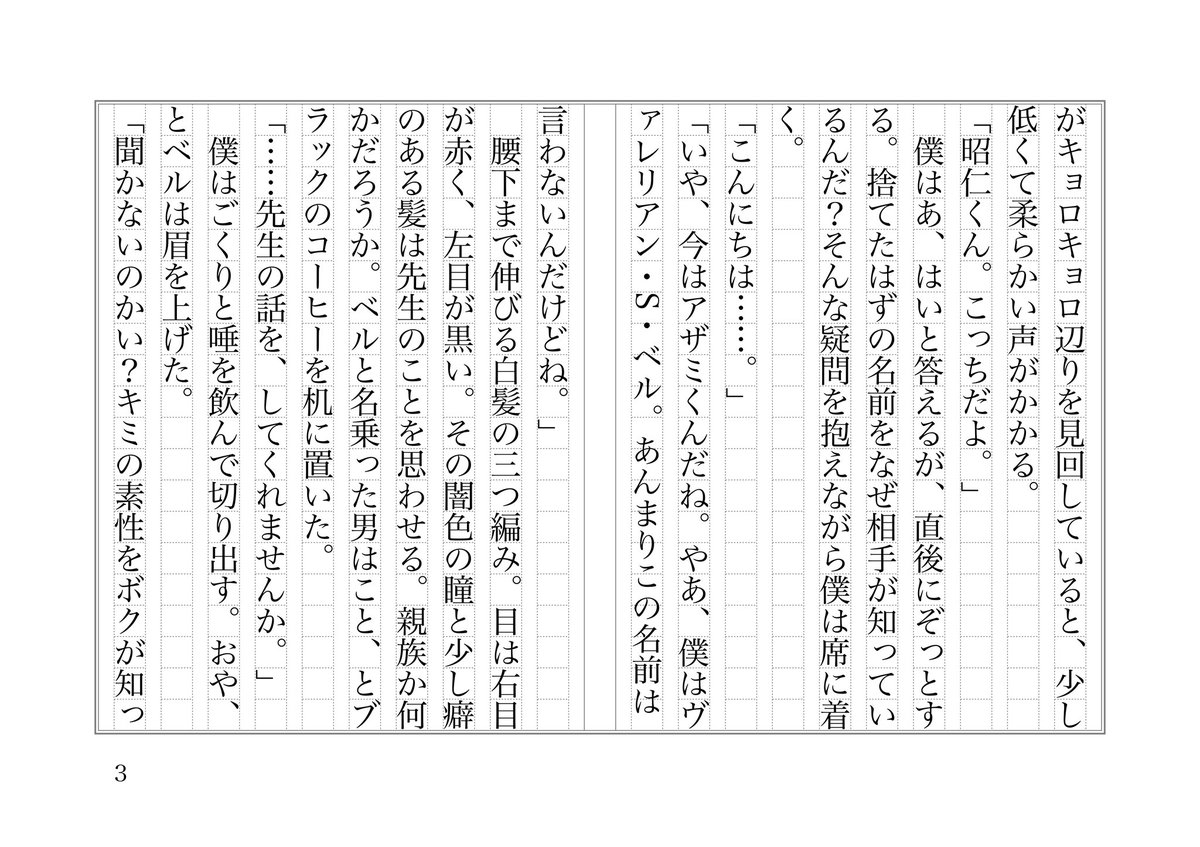 がキョロキョロ辺りを見回していると、少し
低くて柔らかい声がかかる。
「昭仁くん。こっちだよ。」
　僕はあ、はいと答えるが、直後にぞっとす
る。捨てたはずの名前をなぜ相手が知ってい
るんだ？そんな疑問を抱えながら僕は席に着
く。
「こんにちは……。」
「いや、今はアザミくんだね。やあ、僕はヴ
ァレリアン・S・ベル。あんまりこの名前は
言わないんだけどね。」
　腰下まで伸びる白髪の三つ編み。目は右目
が赤く、左目が黒い。その闇色の瞳と少し癖
のある髪は先生のことを思わせる。親族か何
かだろうか。ベルと名乗った男はこと、とブ
ラックのコーヒーを机に置いた。
「……先生の話を、してくれませんか。」
　僕はごくりと唾を飲んで切り出す。おや、
とベルは眉を上げた。
「聞かないのかい？キミの素性をボクが知っ
3